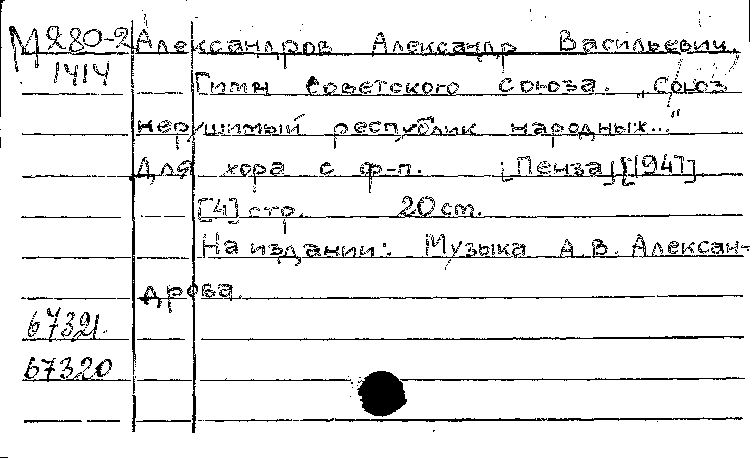 М280-2 Александров Александр Васильевич.
1414 Гимн Советского Союза. „Союз
нерушимый республик народных..."
Для хора с ф-п. [Пенза] [1947]
[4] стр. 20 см.
На издании: Музыка А.В. Алексан-
дрова.
67321.
67320